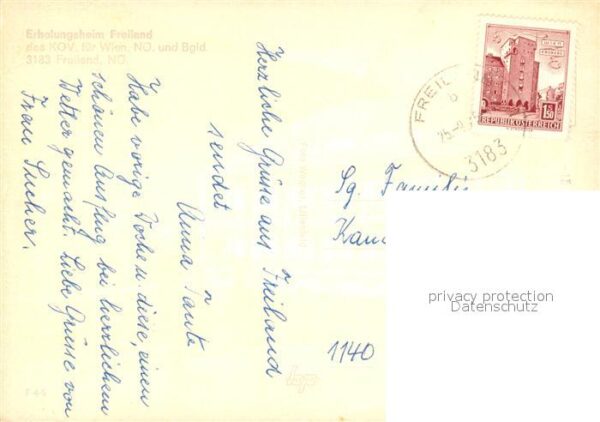 Erholungsheim Freiland
des KOV. für Wien, NÖ. und Bgld.
3183 Freiland, NÖ.
Herzliche Grüsse aus Freiland
sendet
Anna Tante
Habe vorige Woche u. diese, einen
schönen Ausflug bei herrlichem
Wetter gemacht. Liebe Grüsse von
Frau
REPUBLIK ÖSTERREICH
1.50
FREIL
b
3183
Sg. Familie
1140
privacy protection
Datenschutz